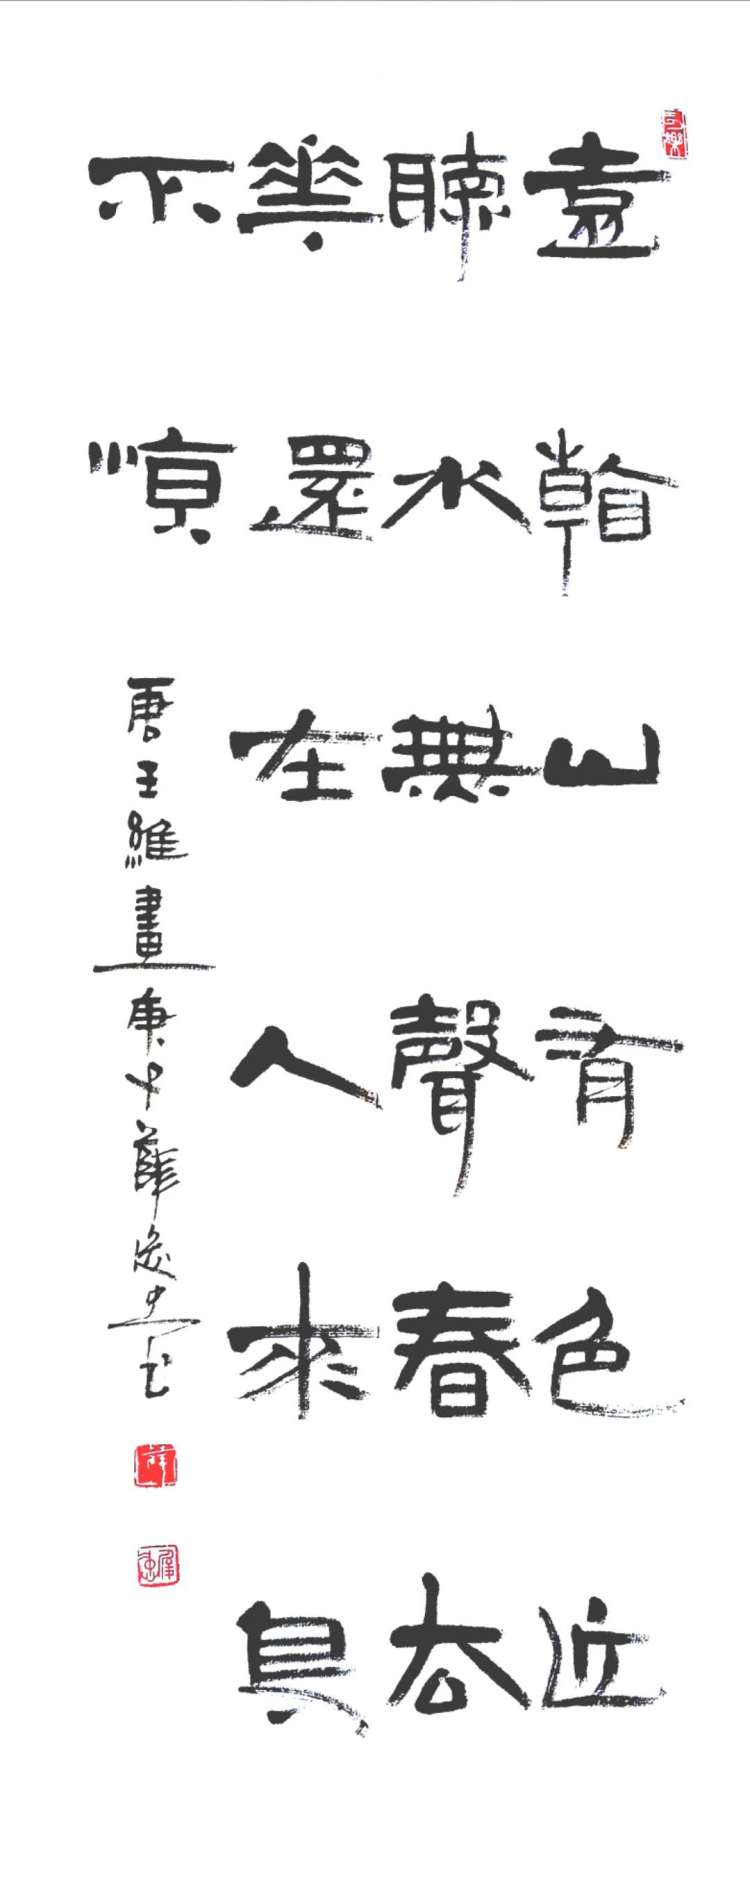 遠看山有色近
聽水無聲春去
華還在人來鳥
不惊
唐王維畫庚子薛